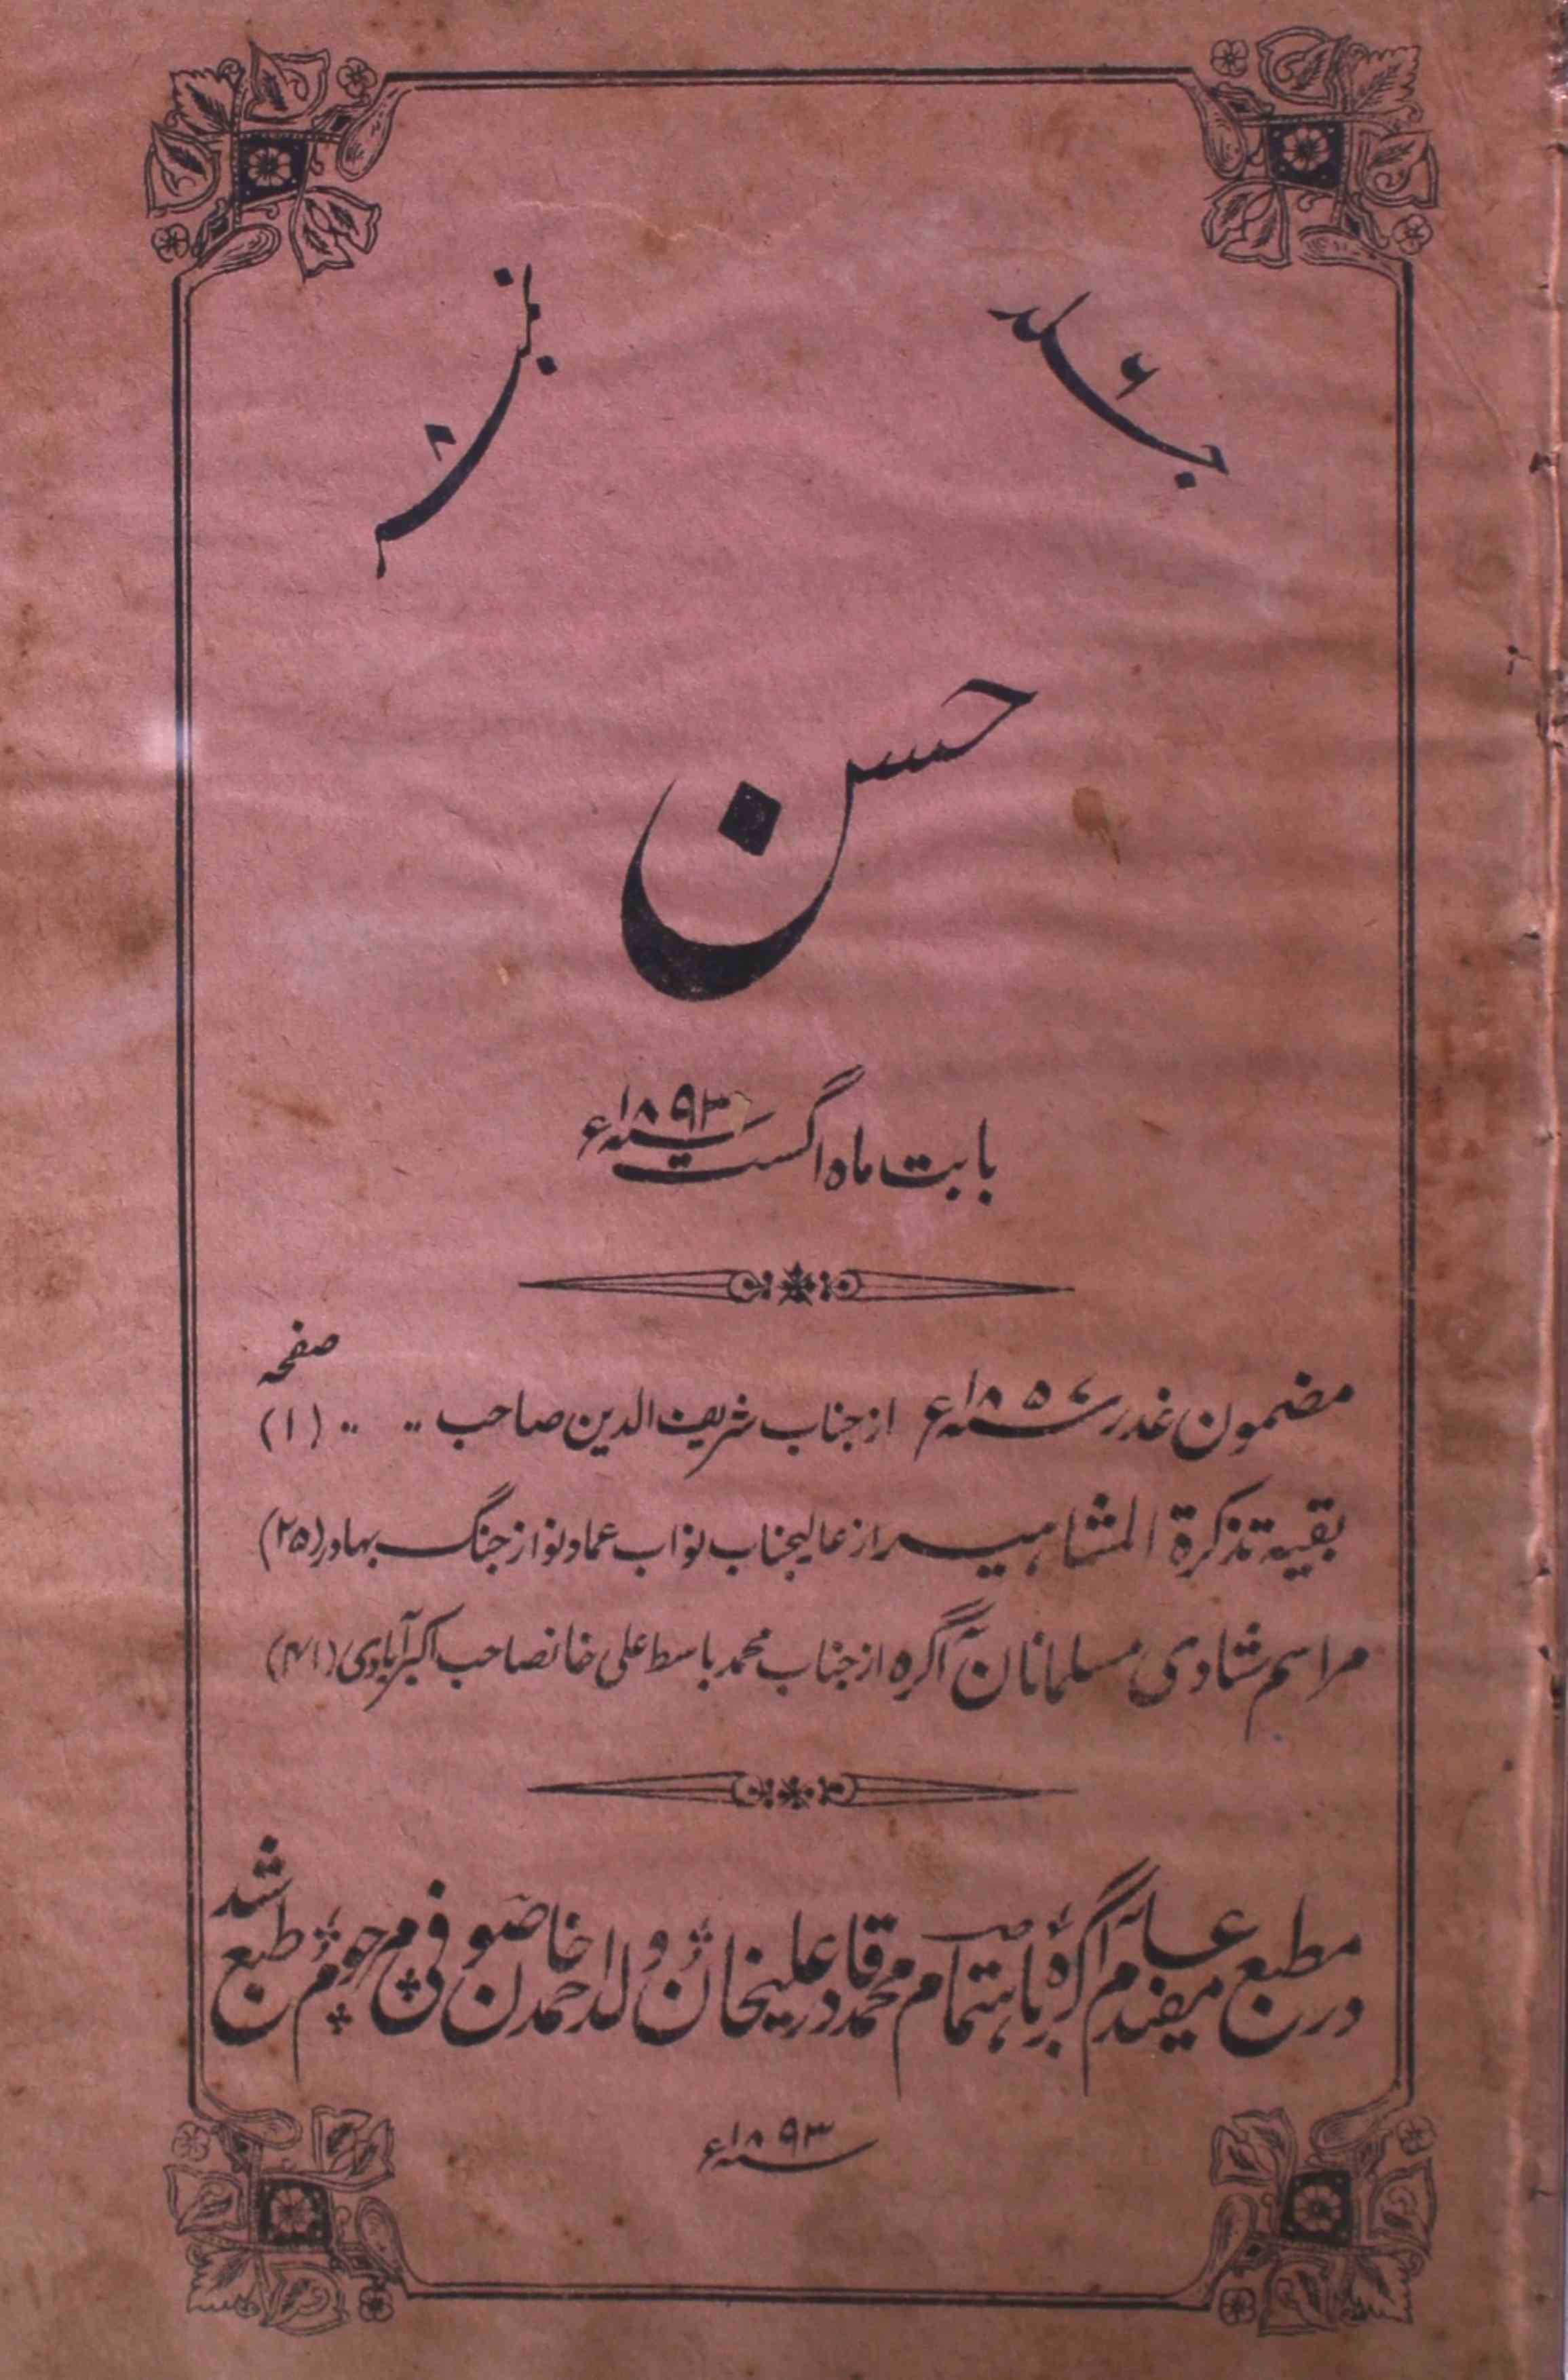 جلد ۶
نمبر ۸
حسن
بابت ماہ اگست سنہ ۱۸۹۳ء
صفحہ
مضمون غدر سنہ ۱۸۵۷ء از جناب شریف الدین صاحب .. .. (۱)
بقیہ تذکرۃ المشاہیر از عالیجناب نواب عماد نواز جنگ بہادر (۲۵)
مراسم شادی مسلمانان آگرہ از جناب محمد باسط علی خانصاحب اکبرآبادی (۴۱)
در مطبع مفید عام آگرہ باہتمام محمد قادر علیخان ولد احمد خان صوفی مرحوم طبع شد
سنہ ۱۸۹۳ء